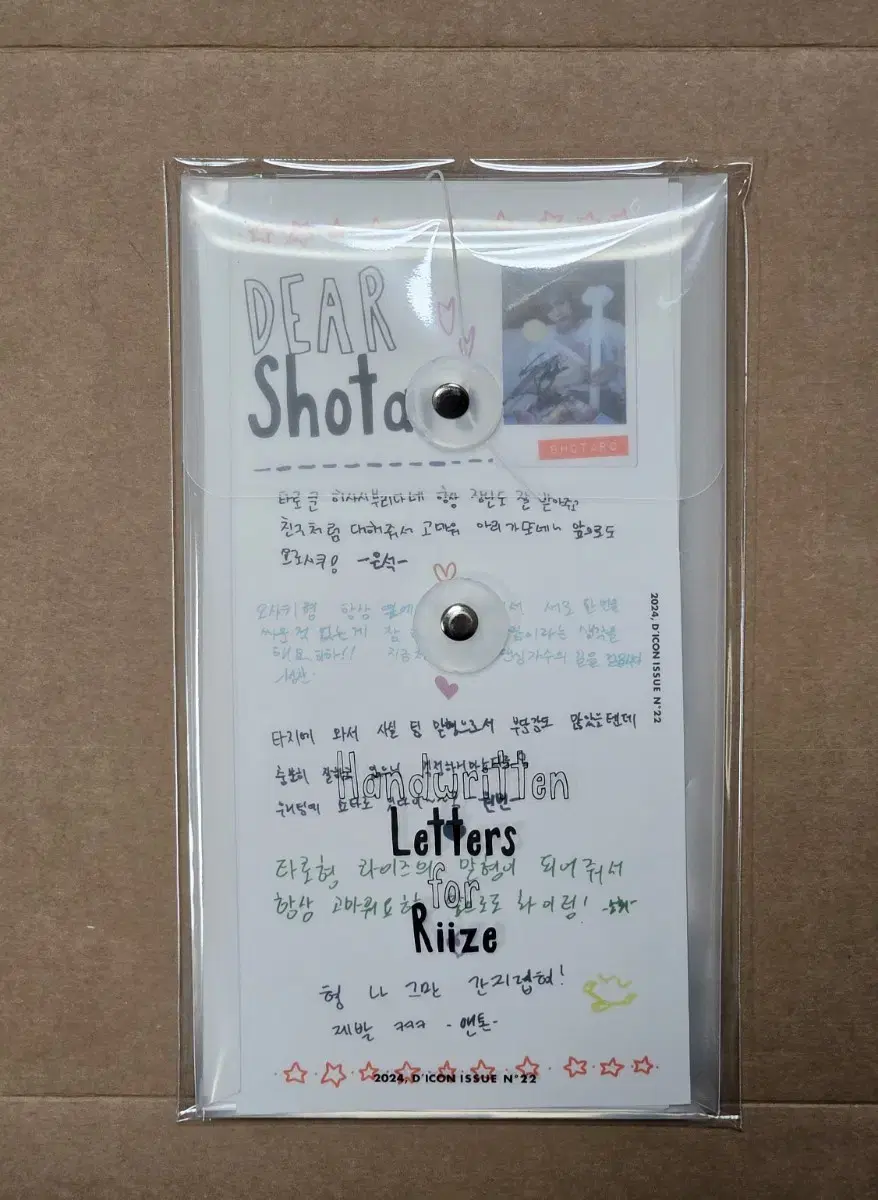 DEAR
Shota
SHOTARO
타로 큰 항상 장난도 잘 받아주고
친구처럼 대해줘서 고마워 아리가또네~ 앞으로도
요로시쿠! -은석-
오사키형 항상 옆에 서 서로 한번을
싸운 적 없는게 참 이라는 생각을
해요 지금
성찬
타지에 와서 사실 팀 맏형으로서 부담감도 많았을텐데
충분히 잘하고
우리팀에 -원빈-
타로형 라이즈의 맏형이 되어줘서
항상 고마워요 앞으로도 화이팅!
형 나 그만 간지럽혀!
제발 ㅋㅋㅋ -앤톤-
2024, D'ICON ISSUE N°22
Handwritten
Letters
for
Riize
2024, D'ICON ISSUE N°22